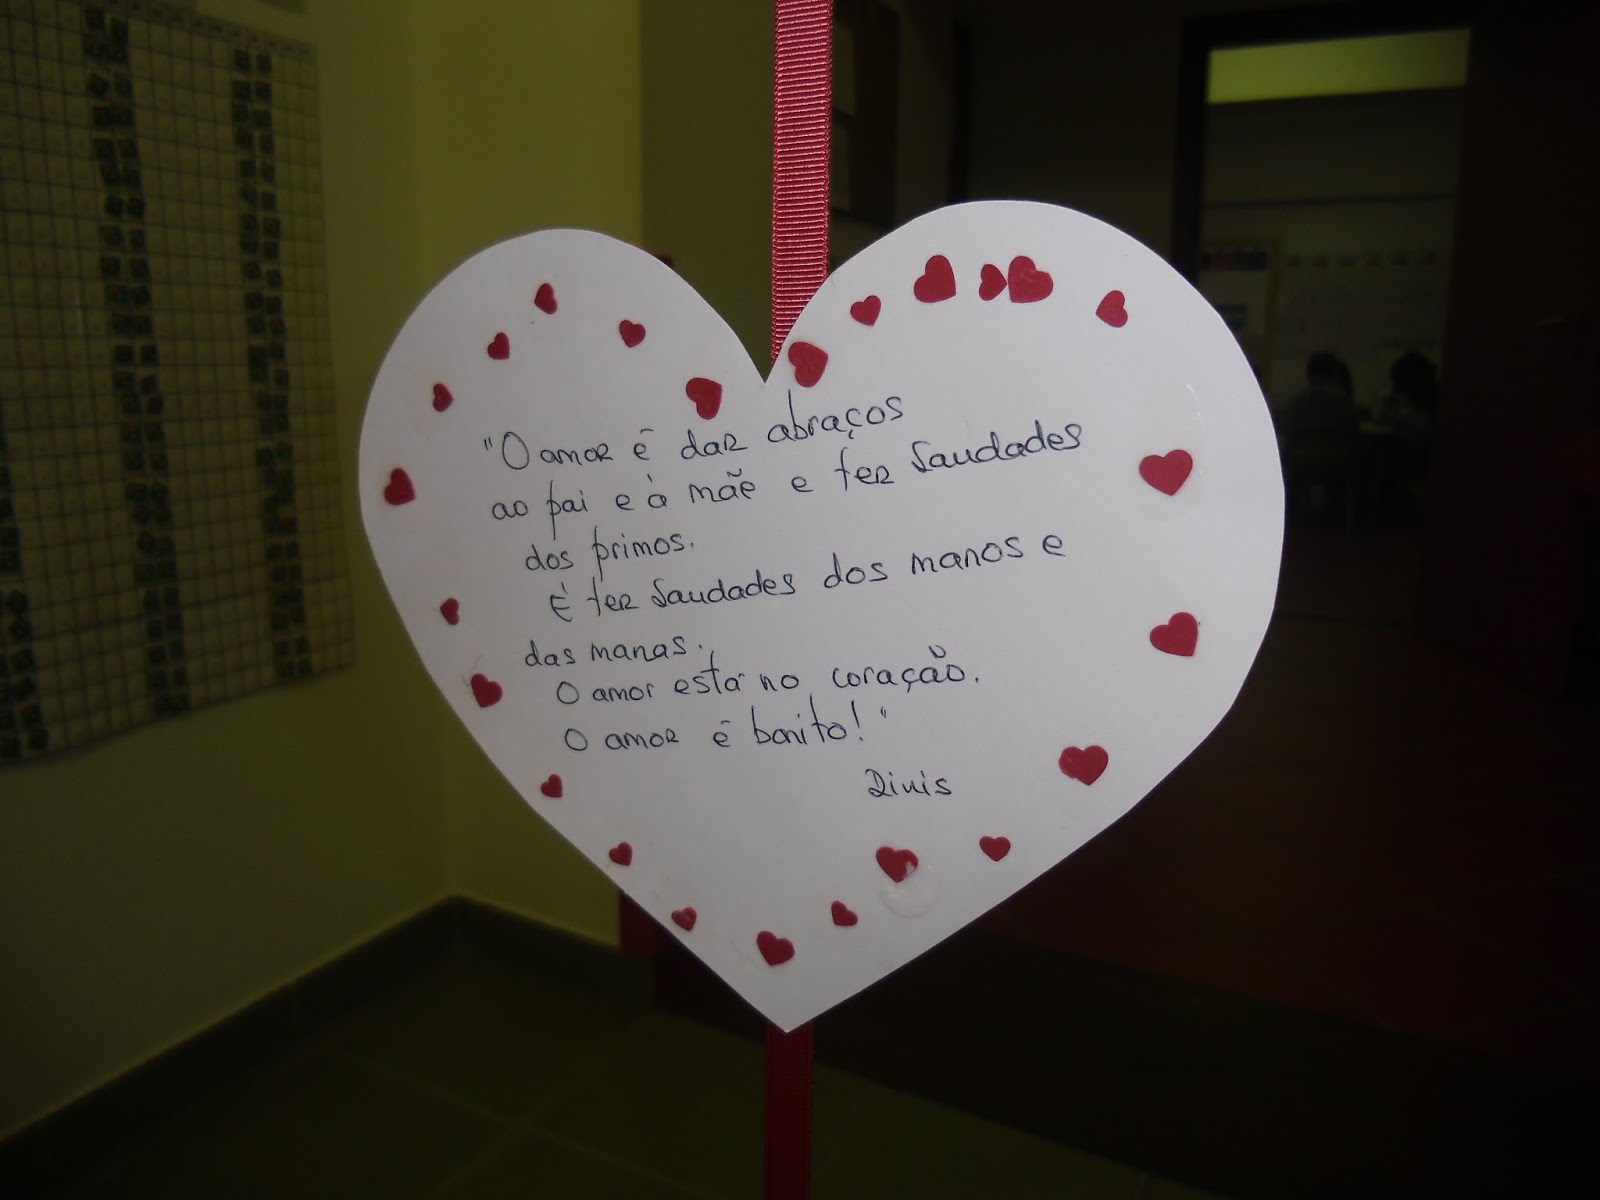 "O amor é dar abraços
ao pai e à mãe e ter saudades
dos primos.
É ter saudades dos manos e
das manas.
O amor está no coração.
O amor é bonito!"
Dinis